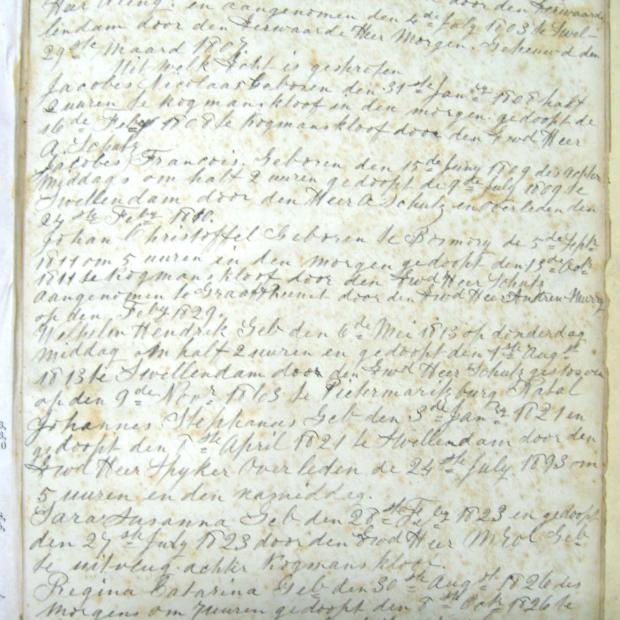 Heer Kling. en aangenomen den 4de July 1803 te Swel-
lendam door den Eerwaarde Heer Morgen. Getrouwd den
29ste Maard 1807.
Uit welk Echt is gesproten
Jacobes Nicolaas Geboren den 31ste Janry 1808 half
2 uuren te Kogmanskloof in den morgen. gedoopt de
16de Feby 1808 te Kogmanskloof door den Eewd Heer
A. Schutz
Jacobes Francois. Geboren den 15de Juny 1809 des agter
middags om half 2 uuren gedoopt de 9de July 1809 te
Swellendam door den Heer A Schutz en overleden den
24ste Feby
Johan Christoffel Geboren te de 5de Sept
1811 om 5 uuren in den morgen gedoopt den 13de Octr
1811 te Kogmanskloof door den Eewd Heer Schutz
aangenomen te Graaffreinit door den Eewd Heer Andrew Murry
op den Feby 1829.
Wilhelm Hendrik Geb den 6de Mei 1813 op donderdag
middag om half 2 uuren en gedoopt den 1ste Augst
1813 te Swellendam door den Eewd Heer Schutz gestorven
op den 9de Novr 1863 te Pietermaritzburg Natal
Johannes Stephanus Geb den 3de Janry 1821 en
gedoopt den 8ste April 1821 te Swellendam door den
Eewd Heer Spyker Over leden de 24ste July 1893 om
5 uuren en den namiddag.
Sara Susanna Geb den 28ste Feby 1823 en gedoopt
den 27ste July 1823 door den Eewd Heer Geb
te uitvlug achter Kogmans kloof.
Regina Catarina Geb den 30ste Augst 1826 des
morgens om 7 uuren gedoopt den 8ste Octr 1826 te